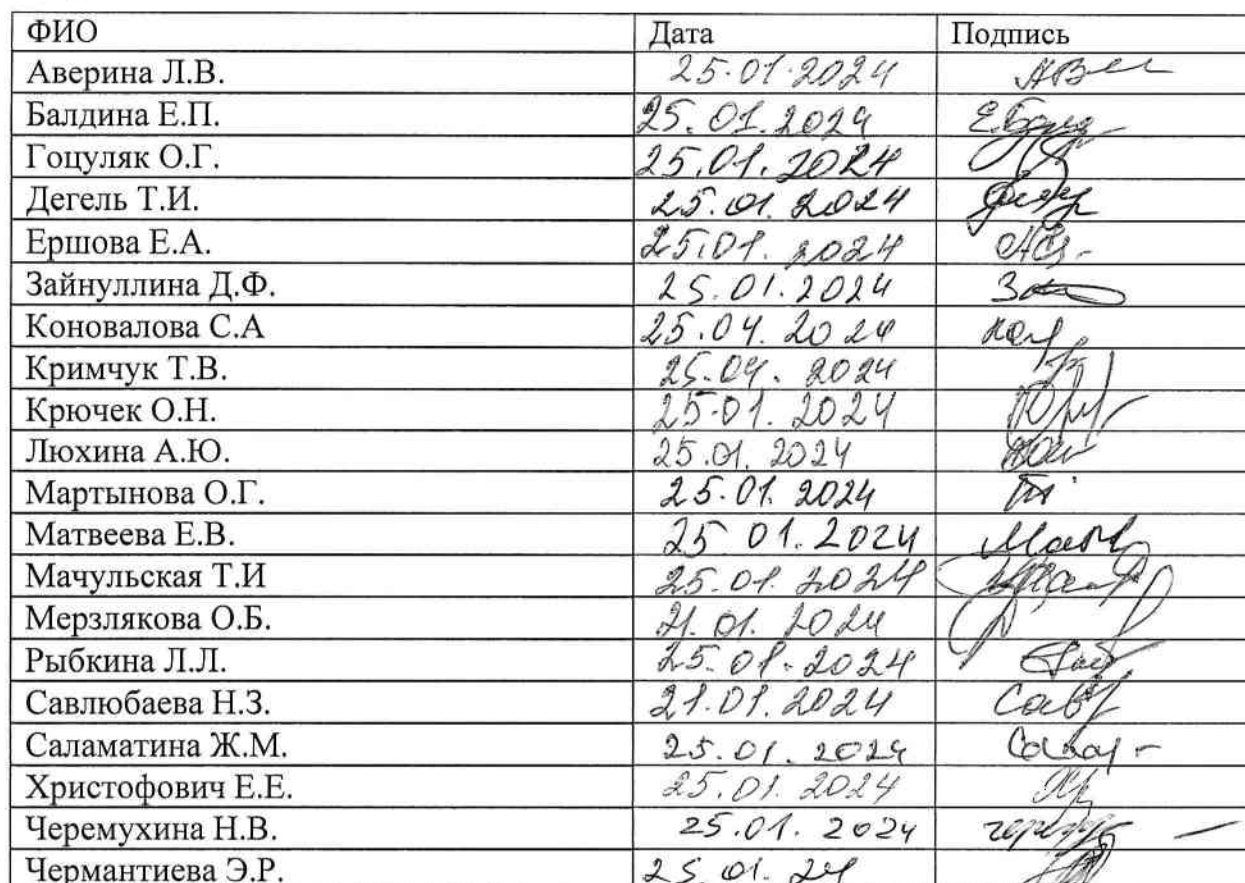 ФИО Дата Подпись
Аверина Л.В. 25.01.2024
Балдина Е.П. 25.01.2024
Гоцуляк О.Г. 25.01.2024
Дегель Т.И. 25.01.2024
Ершова Е.А. 25.01.2024
Зайнуллина Д.Ф. 25.01.2024
Коновалова С.А 25.04.2024
Кримчук Т.В. 25.04.2024
Крючек О.Н. 25.01.2024
Люхина А.Ю. 25.01.2024
Мартынова О.Г. 25.01.2024
Матвеева Е.В. 25 01.2024
Мачульская Т.И 25.01.2024
Мерзлякова О.Б. 21.01.2024
Рыбкина Л.Л. 25.01.2024
Савлюбаева Н.З. 21.01.2024
Саламатина Ж.М. 25.01.2024
Христофович Е.Е. 25.01.2024
Черемухина Н.В. 25.01.2024
Чермантиева Э.Р. 25.01.24